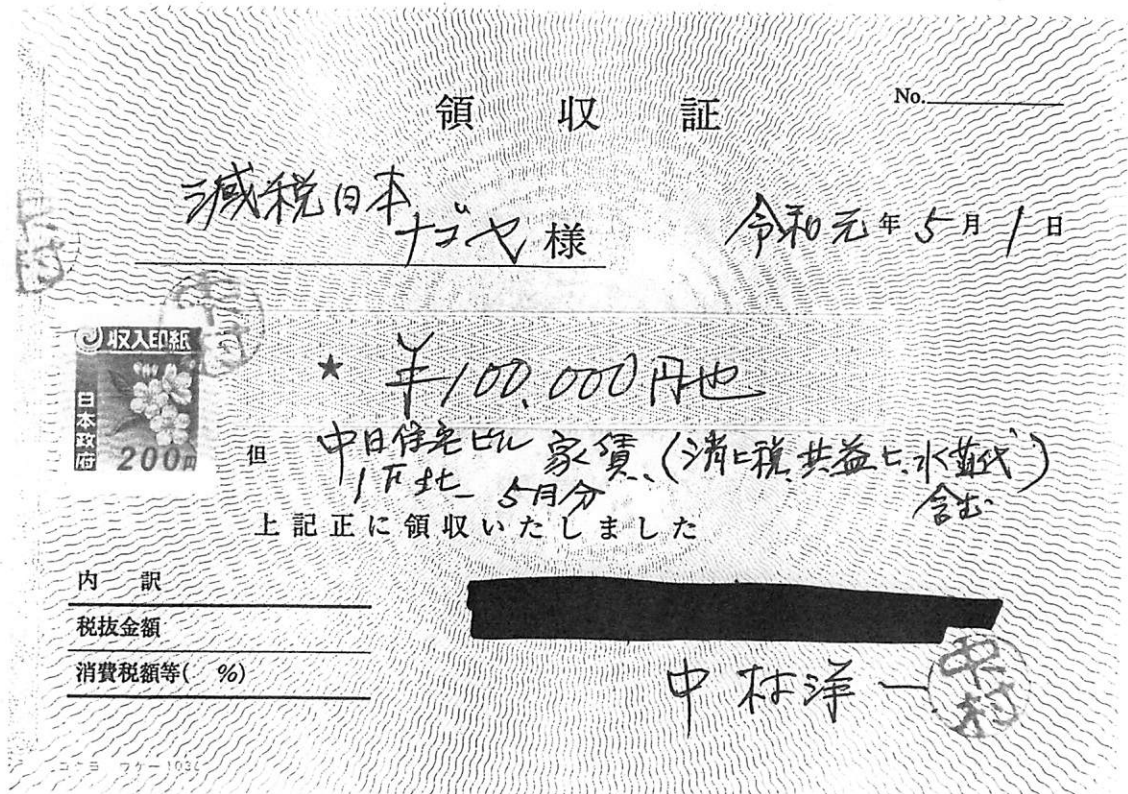 領収証
No.
減税日本
ナゴヤ 様
令和元年5月1日
中村
収入印紙
日本政府
200円
★ ¥100,000円也
但 中日住宅ビル 家賃、(消ヒ税、共益ヒ、水道代)
1F北 5月分 含む
上記正に領収いたしました
内訳
税抜金額
消費税額等( %)
中村洋一
中村